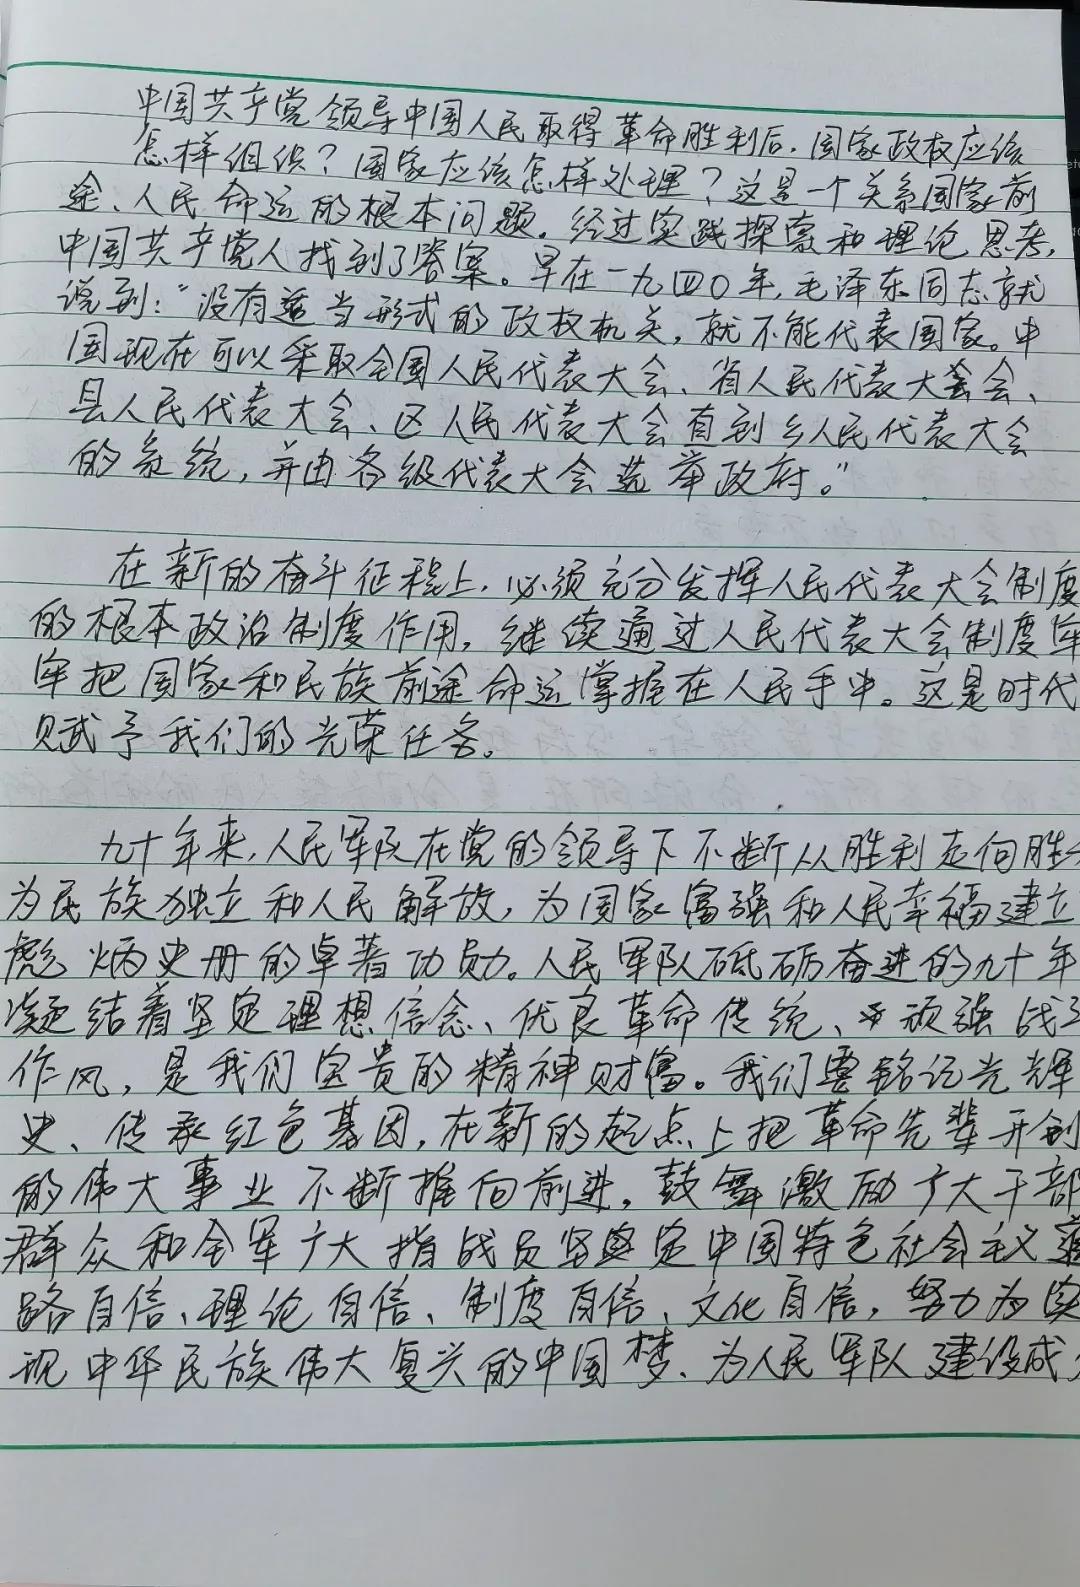 中国共产党领导中国人民取得革命胜利后，国家政权应该
怎样组织？国家应该怎样处理？这是一个关系国家前
途、人民命运的根本问题。经过实践探索和理论思考，
中国共产党人找到了答案。早在一九四〇年，毛泽东同志就
说到：“没有适当形式的政权机关，就不能代表国家。中
国现在可以采取全国人民代表大会、省人民代表大会、
县人民代表大会、区人民代表大会直到乡人民代表大会
的系统，并由各级代表大会选举政府。”
在新的奋斗征程上，必须充分发挥人民代表大会制度
的根本政治制度作用，继续通过人民代表大会制度牢
牢把国家和民族前途命运掌握在人民手中。这是时代
赋予我们的光荣任务。
九十年来，人民军队在党的领导下不断从胜利走向胜
为民族独立和人民解放，为国家富强和人民幸福建立
彪炳史册的卓著功勋。人民军队砥砺奋进的九十年
凝结着坚定理想信念、优良革命传统、顽强战斗
作风，是我们宝贵的精神财富。我们要铭记光辉
史、传承红色基因，在新的起点上把革命先辈开创
的伟大事业不断推向前进。鼓舞激励广大干部
群众和全军广大指战员坚定中国特色社会主义道
路自信、理论自信、制度自信、文化自信，努力为实
现中华民族伟大复兴的中国梦、为人民军队建设成